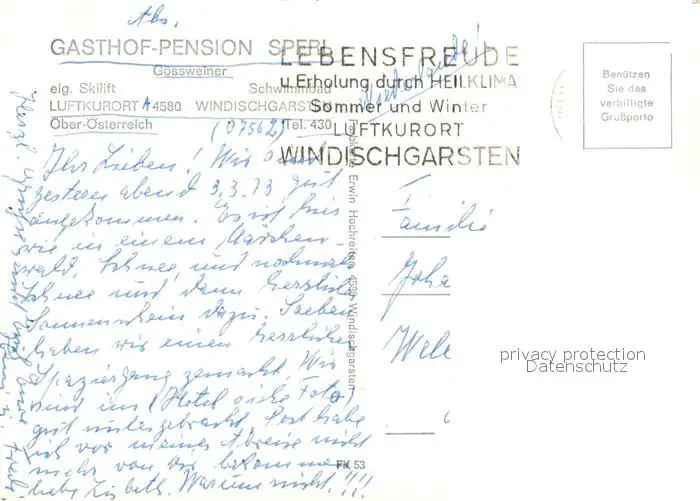 Abs.
GASTHOF-PENSION SPERL
Gössweiner
eig. Skilift Schwimmbad
LUFTKURORT A 4580 WINDISCHGARSTEN
Ober-Österreich (07562) Tel. 430
LEBENSFREUDE
u. Erholung durch HEILKLIMA
Sommer und Winter
LUFTKURORT
WINDISCHGARSTEN
Benützen
Sie das
verbilligte
Grußporto
Ihr Lieben! Wir sind
gestern abend 3.3.73 gut
angekommen. Es ist hier
wie in einem Märchen-
wald, Schnee und nochmals
Schnee und dann herrlicher
Sonnenschein dazu. Soeben
haben wir einen herrlichen
Spaziergang gemacht. Wir
sind im (Hotel siehe Foto)
gut untergebracht. Post habe
ich vor meiner Abreise nicht
mehr von dir bekommen
liebe Lisbeth. Warum nicht!!!!
Herzl.
Farbkarte Erwin Hochreiter, 4580 Windischgarsten
FK 53
Familie
Joha
privacy protection
Datenschutz